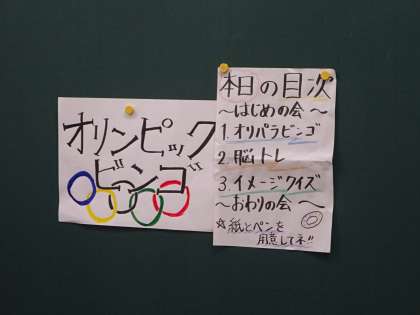 オリンピック
ビンゴ
本日の目次
～はじめの会～
1.オリパラビンゴ
2.脳トレ
3.イメージクイズ
～おわりの会～
☆紙とペンを
用意してネ!!